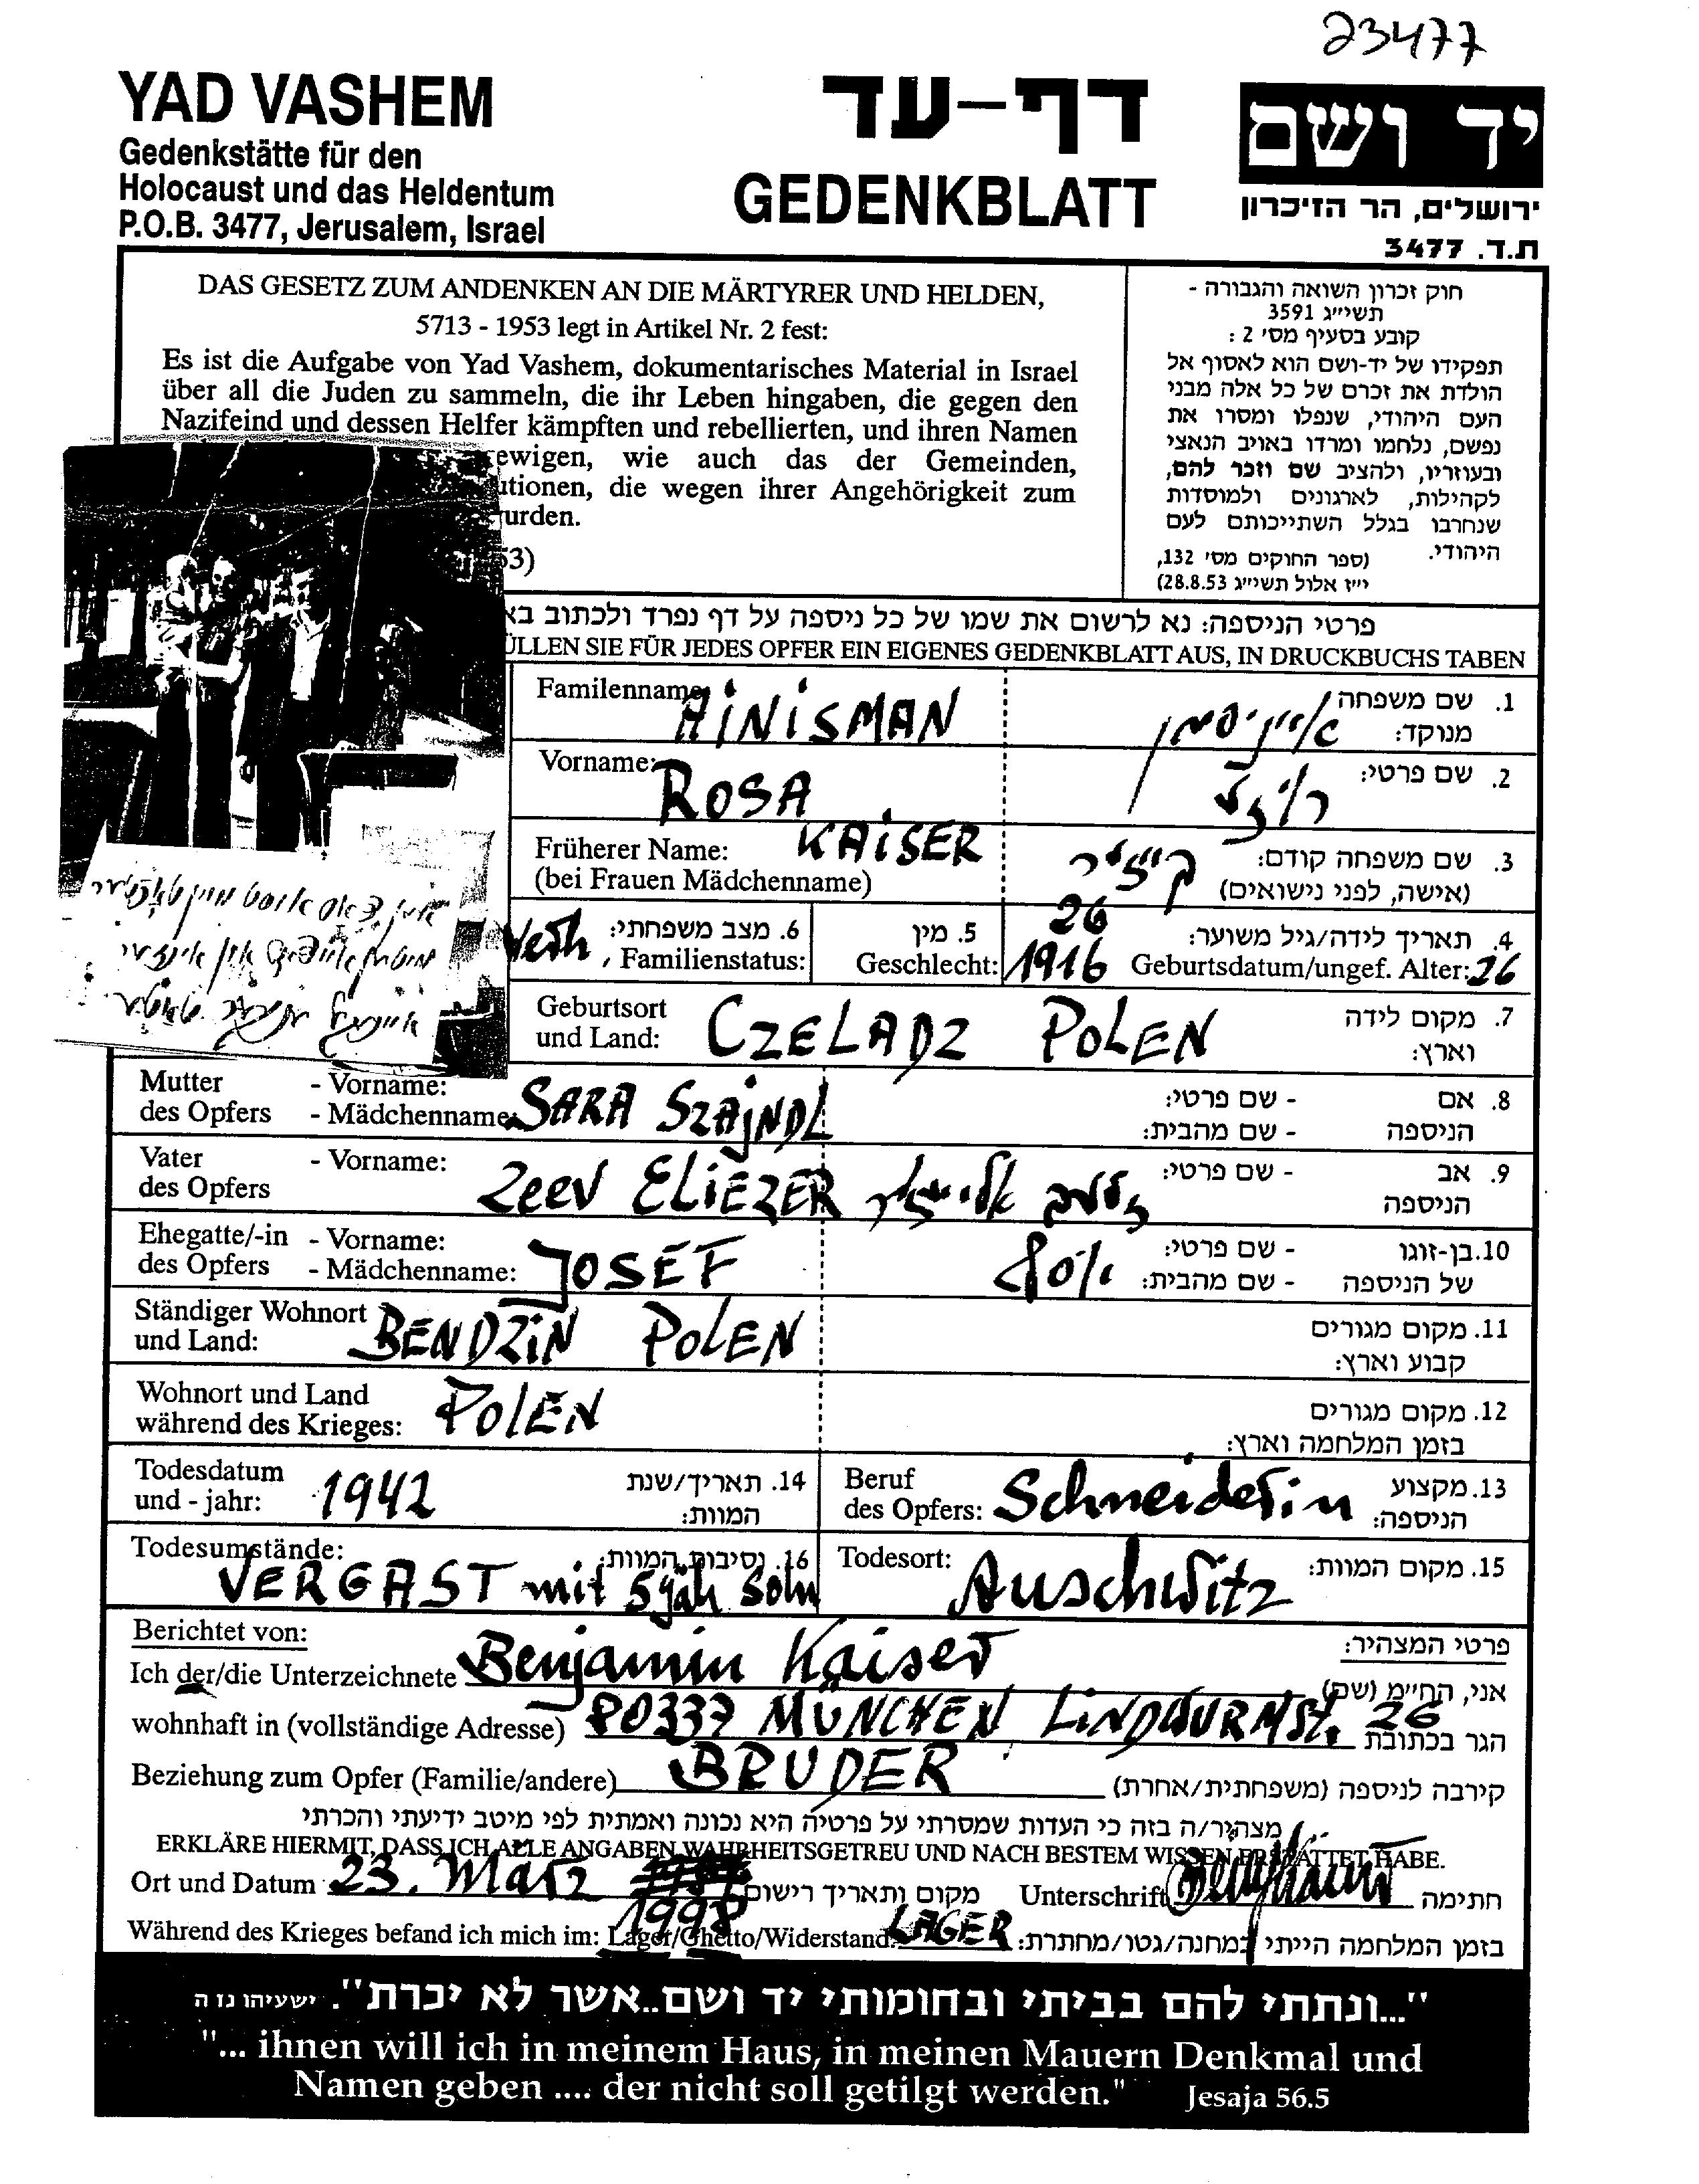 23477
YAD VASHEM
Gedenkstätte für den
Holocaust und das Heldentum
P.O.B. 3477, Jerusalem, Israel
דף-עד
GEDENKBLATT
יד ושם
ירושלים, הר הזיכרון
ת.ד. 3477
DAS GESETZ ZUM ANDENKEN AN DIE MÄRTYRER UND HELDEN,
5713 - 1953 legt in Artikel Nr. 2 fest:
Es ist die Aufgabe von Yad Vashem, dokumentarisches Material in Israel
über all die Juden zu sammeln, die ihr Leben hingaben, die gegen den
Nazifeind und dessen Helfer kämpften und rebellierten, und ihren Namen
ewigen, wie auch das der Gemeinden,
utionen, die wegen ihrer Angehörigkeit zum
urden.
53)
חוק זכרון השואה והגבורה -
תשי״ג 3591
קובע בסעיף מס׳ 2 :
תפקידו של יד-ושם הוא לאסוף אל
הולדת את זכרם של כל אלה מבני
העם היהודי, שנפלו ומסרו את
נפשם, נלחמו ומרדו באויב הנאצי
ובעוזריו, ולהציב שם וזכר להם,
לקהילות, לארגונים ולמוסדות
שנחרבו בגלל השתייכותם לעם
היהודי. (ספר החוקים מס׳ 132,
י״ז אלול תשי״ג 28.8.53)
פרטי הניספה: נא לרשום את שמו של כל ניספה על דף נפרד ולכתוב בא
ÜLLEN SIE FÜR JEDES OPFER EIN EIGENES GEDENKBLATT AUS, IN DRUCKBUCHS TABEN
Familenname: AINISMAN
1. שם משפחה
מנוקד:
Vorname: ROSA
2. שם פרטי:
Früherer Name: KAISER
(bei Frauen Mädchenname)
3. שם משפחה קודם: קייזער
(אישה, לפני נישואים)
Verh 6. מצב משפחתי:
Familienstatus:
5. מין
Geschlecht:
26
1916
4. תאריך לידה/גיל משוער:
Geburtsdatum/ungef. Alter: 26
Geburtsort
und Land: CZELADZ POLEN
7. מקום לידה
וארץ:
Mutter - Vorname:
des Opfers - Mädchenname: SARA SZAJNDL
8. אם - שם פרטי:
הניספה - שם מהבית:
Vater - Vorname:
des Opfers Zeev ELIEZER
זאב אליעזר
9. אב - שם פרטי:
הניספה
Ehegatte/-in - Vorname:
des Opfers - Mädchenname: JOSEF
יוסף
10. בן-זוגו - שם פרטי:
של הניספה - שם מהבית:
Ständiger Wohnort
und Land: BENDZIN POLEN
11. מקום מגורים
קבוע וארץ:
Wohnort und Land
während des Krieges: POLEN
12. מקום מגורים
בזמן המלחמה וארץ:
Todesdatum
und - jahr: 1942
14. תאריך/שנת
המוות:
Beruf
des Opfers: Schneiderin
13. מקצוע
הניספה:
Todesumstände: 16. נסיבות המוות:
VERGAST mit 5 jäh Sohn
Todesort: Auschwitz
15. מקום המוות:
Berichtet von: פרטי המצהיר:
Ich der/die Unterzeichnete Benjamin Kaiser אני, החי״מ (שם)
wohnhaft in (vollständige Adresse) 80337 MÜNCHEN LINDWURMSt. 26 הגר בכתובת
Beziehung zum Opfer (Familie/andere) BRUDER קירבה לניספה (משפחתית/אחרת)
מצהיר/ה בזה כי העדות שמסרתי על פרטיה היא נכונה ואמתית לפי מיטב ידיעתי והכרתי
ERKLÄRE HIERMIT, DASS ICH ALLE ANGABEN WAHRHEITSGETREU UND NACH BESTEM WISSEN ERSTATTET HABE.
Ort und Datum 23. März מקום ותאריך רישום Unterschrift חתימה
1998
Während des Krieges befand ich mich im: Lager/Ghetto/Widerstand: LAGER בזמן המלחמה הייתי במחנה/גטו/מחתרת:
"...ונתתי להם בביתי ובחומותי יד ושם..אשר לא יכרת". ישעיהו נז ה
"... ihnen will ich in meinem Haus, in meinen Mauern Denkmal und
Namen geben .... der nicht soll getilgt werden." Jesaja 56.5